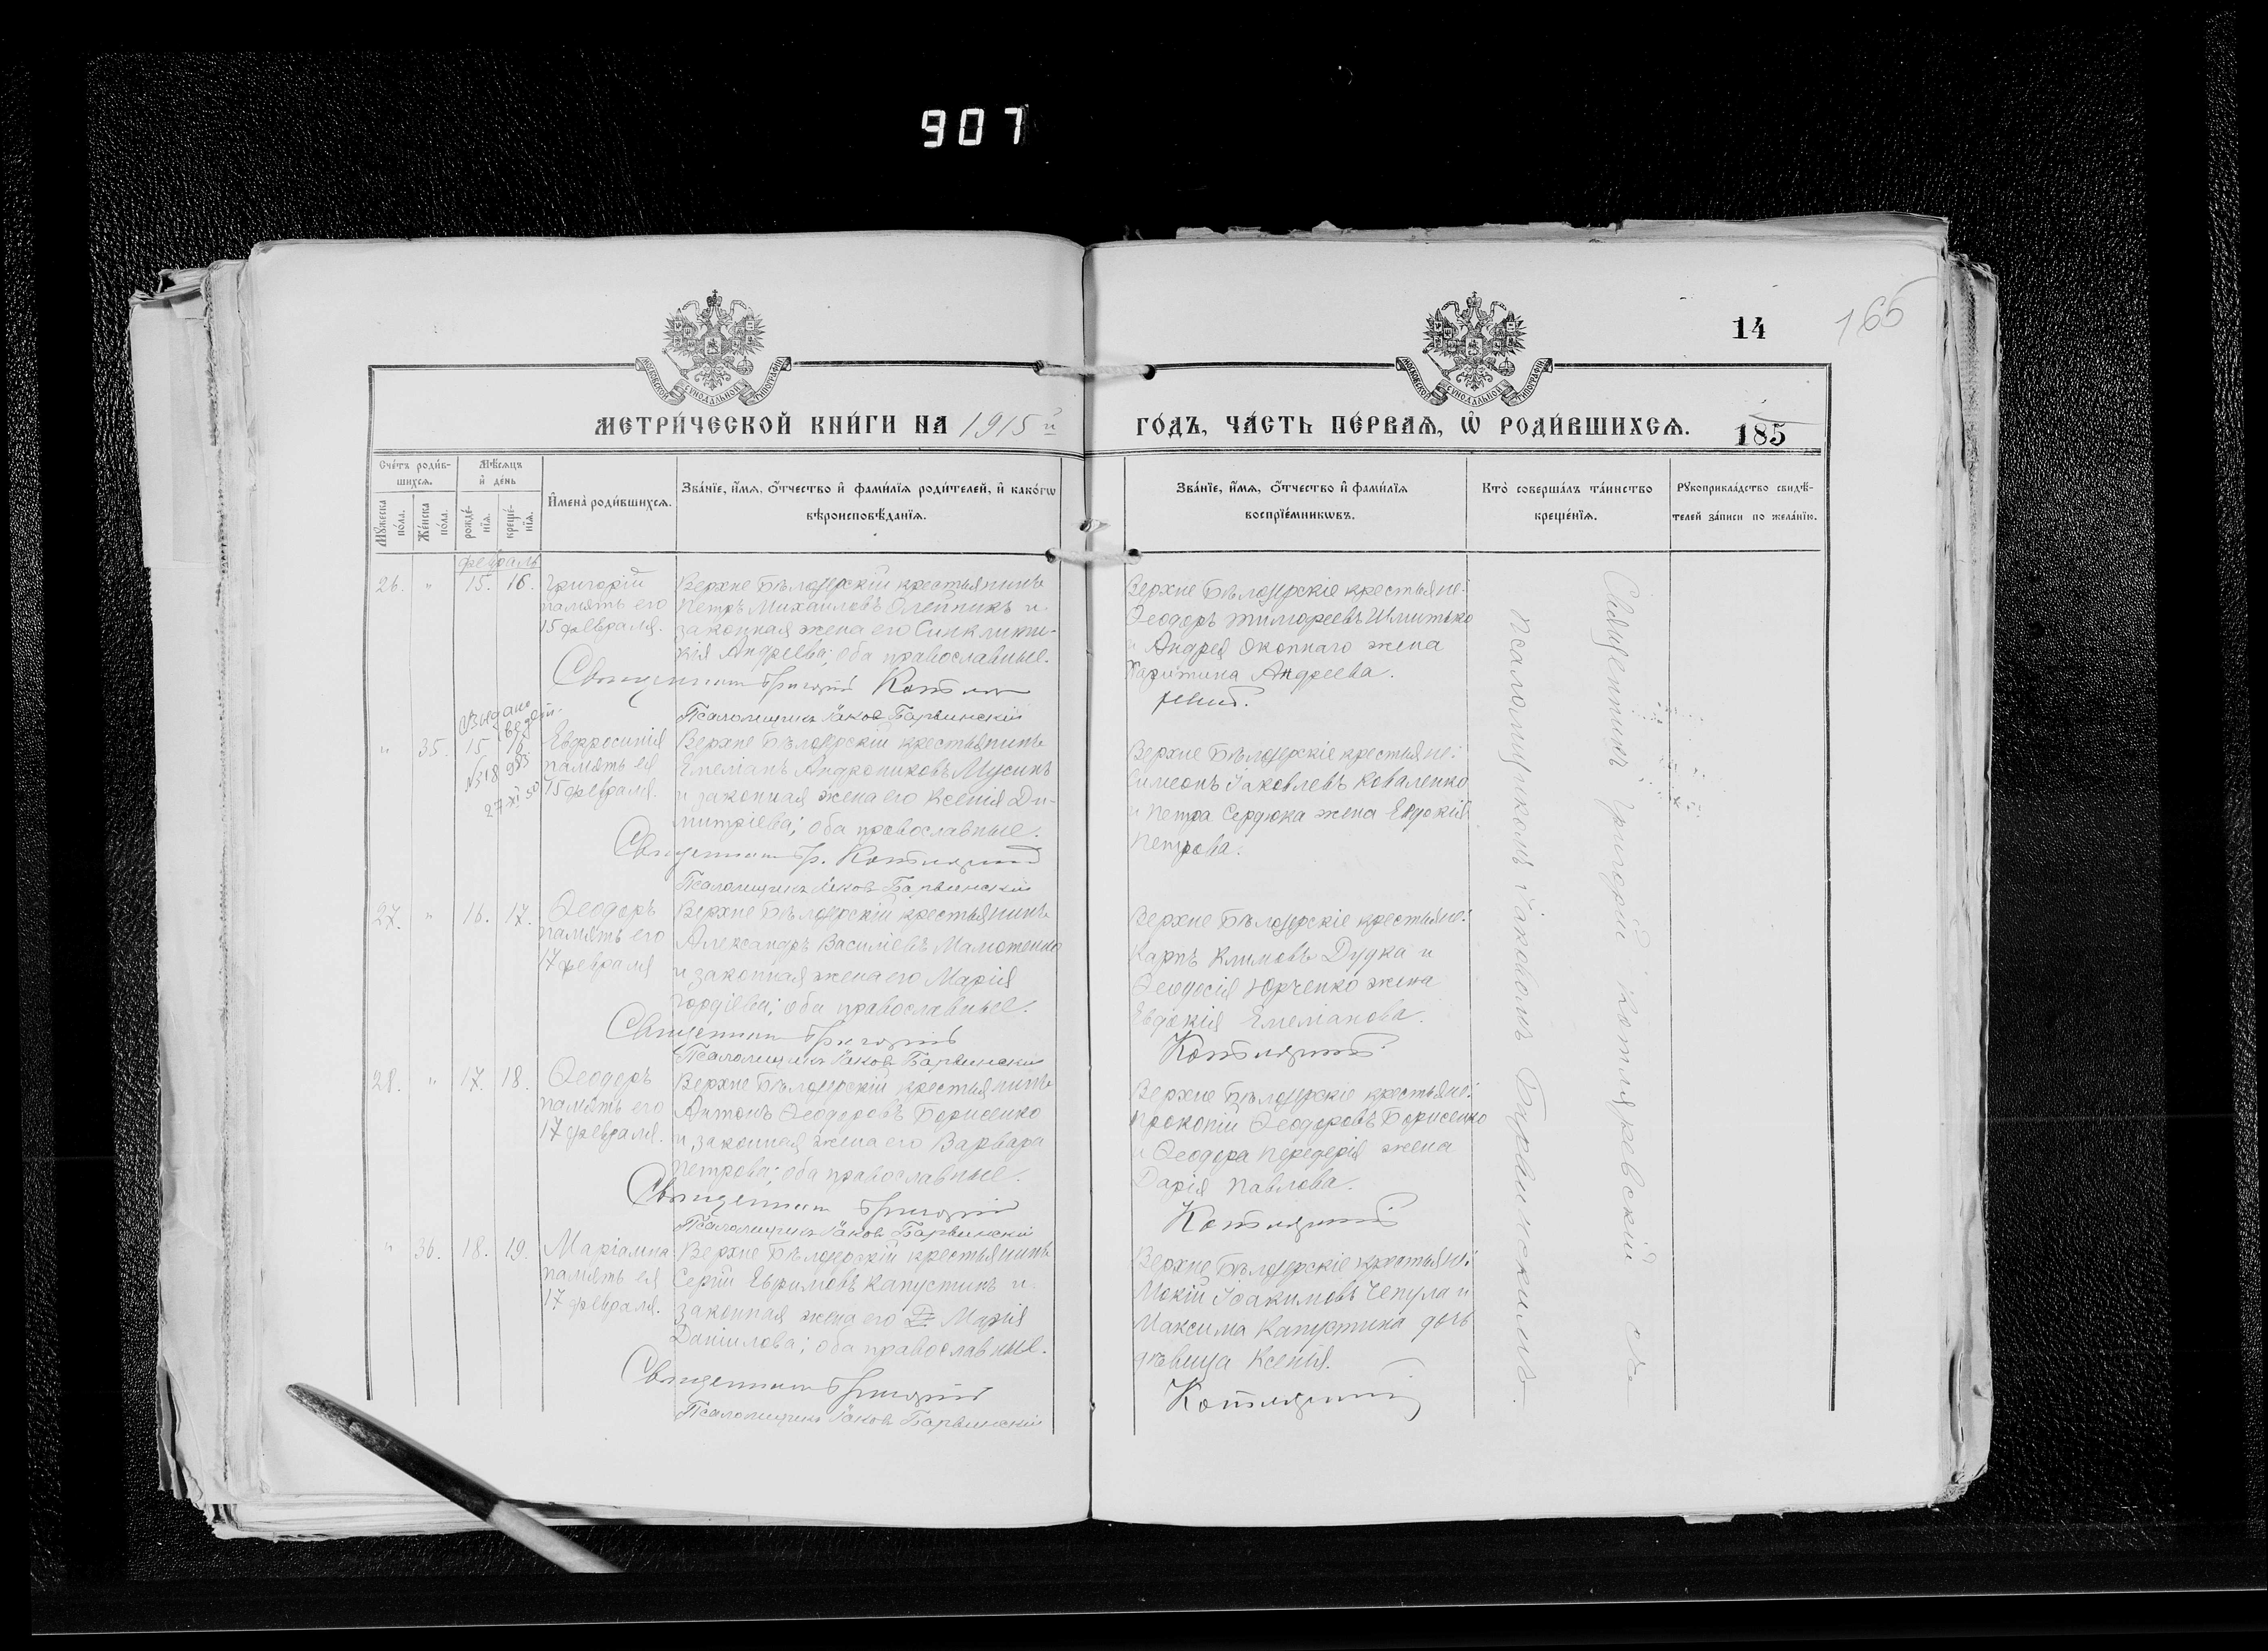 907
14
165
МОСКОВСКОЙ СѴНОДАЛЬНОЙ ТИПОГРАФІИ
МОСКОВСКОЙ СѴНОДАЛЬНОЙ ТИПОГРАФІИ
МЕТРИ́ЧЕСКОЙ КНИ́ГИ НА 1915й
ГО́ДЪ, ЧА́СТЬ ПЕ́РВАѦ, Ѡ҆ РОДИ́ВШИХСѦ.
185
Сче́тъ роди́в-
шихсѧ.
Мѣ́сѧцъ
и҆ де́нь
Мꙋ́жеска по́ла.
Же́нска по́ла.
рожде́-нїѧ.
креще́-нїѧ.
И҆мена̀ роди́вшихсѧ.
Зва́нїе, и҆́мѧ, ѻ҆́тчество и҆ фами́лїѧ роди́телей, и҆ како́гѡ
вѣроисповѣ́данїѧ.
Зва́нїе, и҆́мѧ, ѻ҆́тчество и҆ фами́лїѧ
воспрїе́мникѡвъ.
Кто̀ соверша́лъ та́инство
креще́нїѧ.
Рꙋкоприкла́дство свидѣ́-
телей за́писи по жела́нїю.
Февраль
26. " 15. 16.
Григорій
память его
15 февраля.
Верхне Бѣлозерскій крестьянинъ
Петръ Михаиловъ Олейникъ и
законная жена его Синклити-
кія Андреева; оба православные.
Священникъ Григорій
Псаломщикъ Іаковъ Барвинскій
Верхне Бѣлозерскіе крестьяне:
Ѳеодоръ Тимофеевъ Шлитько
и Андрея Окопнаго жена
Харитина Андреева.
Выдано
" 35. 15. 16.
№ 18983
27-XI 50
Евфросинія
память ея
15 февраля.
Верхне Бѣлозерскій крестьянинъ
Емеліанъ Андрониковъ Мусинъ
и законная жена его Ксенія Ди-
митріева; оба православные.
Священникъ Гр.
Псаломщикъ Іаковъ Барвинскій
Верхне Бѣлозерскіе крестьяне:
Симеонъ Іаковлевъ Коваленко
и Петра Сердюка жена Евдокія
Петрова.
27. " 16. 17.
Ѳеодоръ
память его
17 февраля
Верхне Бѣлозерскій крестьянинъ
Александръ Василіевъ
и законная жена его Марія
Гордіева; оба православные.
Священникъ Григорій
Псаломщикъ Іаковъ Барвинскій
Верхне Бѣлозерскіе крестьяне:
Карпъ Климовъ Дудка и
Ѳеодосія Юрченко жена
Евдокія Емеліанова.
28. " 17. 18.
Ѳеодоръ
память его
17 февраля.
Верхне Бѣлозерскій крестьянинъ
Антонъ Ѳеодоровъ Борисенко
и законная жена его Варвара
Петрова; оба православные.
Священникъ Григорій
Псаломщикъ Іаковъ Барвинскій
Верхне Бѣлозерскіе крестьяне:
Прокопій Ѳеодоровъ Борисенко
и Ѳеодора Передерія жена
Дарія Павлова.
" 36. 18. 19.
Маріамна
память ея
17 февраля.
Верхне Бѣлозерскій крестьянинъ
Сергій Ефимовъ Капустинъ и
законная жена его Марія
Даніилова; оба православные.
Священникъ Григорій
Псаломщикъ Іаковъ Барвинскій
Верхне Бѣлозерскіе крестьяне:
Мокій Іоакимовъ Чепула и
Максима Капустина дочь
дѣвица Ксенія.
Священникъ Григорій Котляревскій съ
псаломщикомъ Іаковомъ Барвинскимъ.